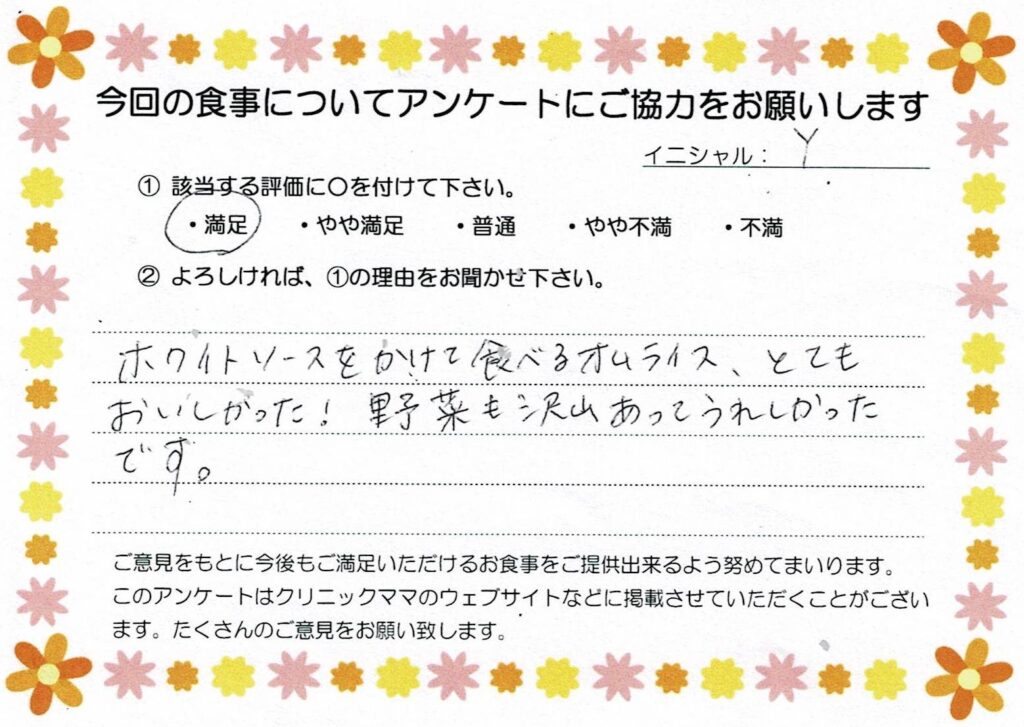 今回の食事についてアンケートにご協力をお願いします
イニシャル： Y
① 該当する評価に〇を付けて下さい。
・満足 ・やや満足 ・普通 ・やや不満 ・不満
② よろしければ、①の理由をお聞かせ下さい。
ホワイトソースをかけて食べるオムライス、とても
おいしかった！ 野菜も沢山あってうれしかった
です。
ご意見をもとに今後もご満足いただけるお食事をご提供出来るよう努めてまいります。
このアンケートはクリニックママのウェブサイトなどに掲載させていただくことがござい
ます。たくさんのご意見をお願い致します。